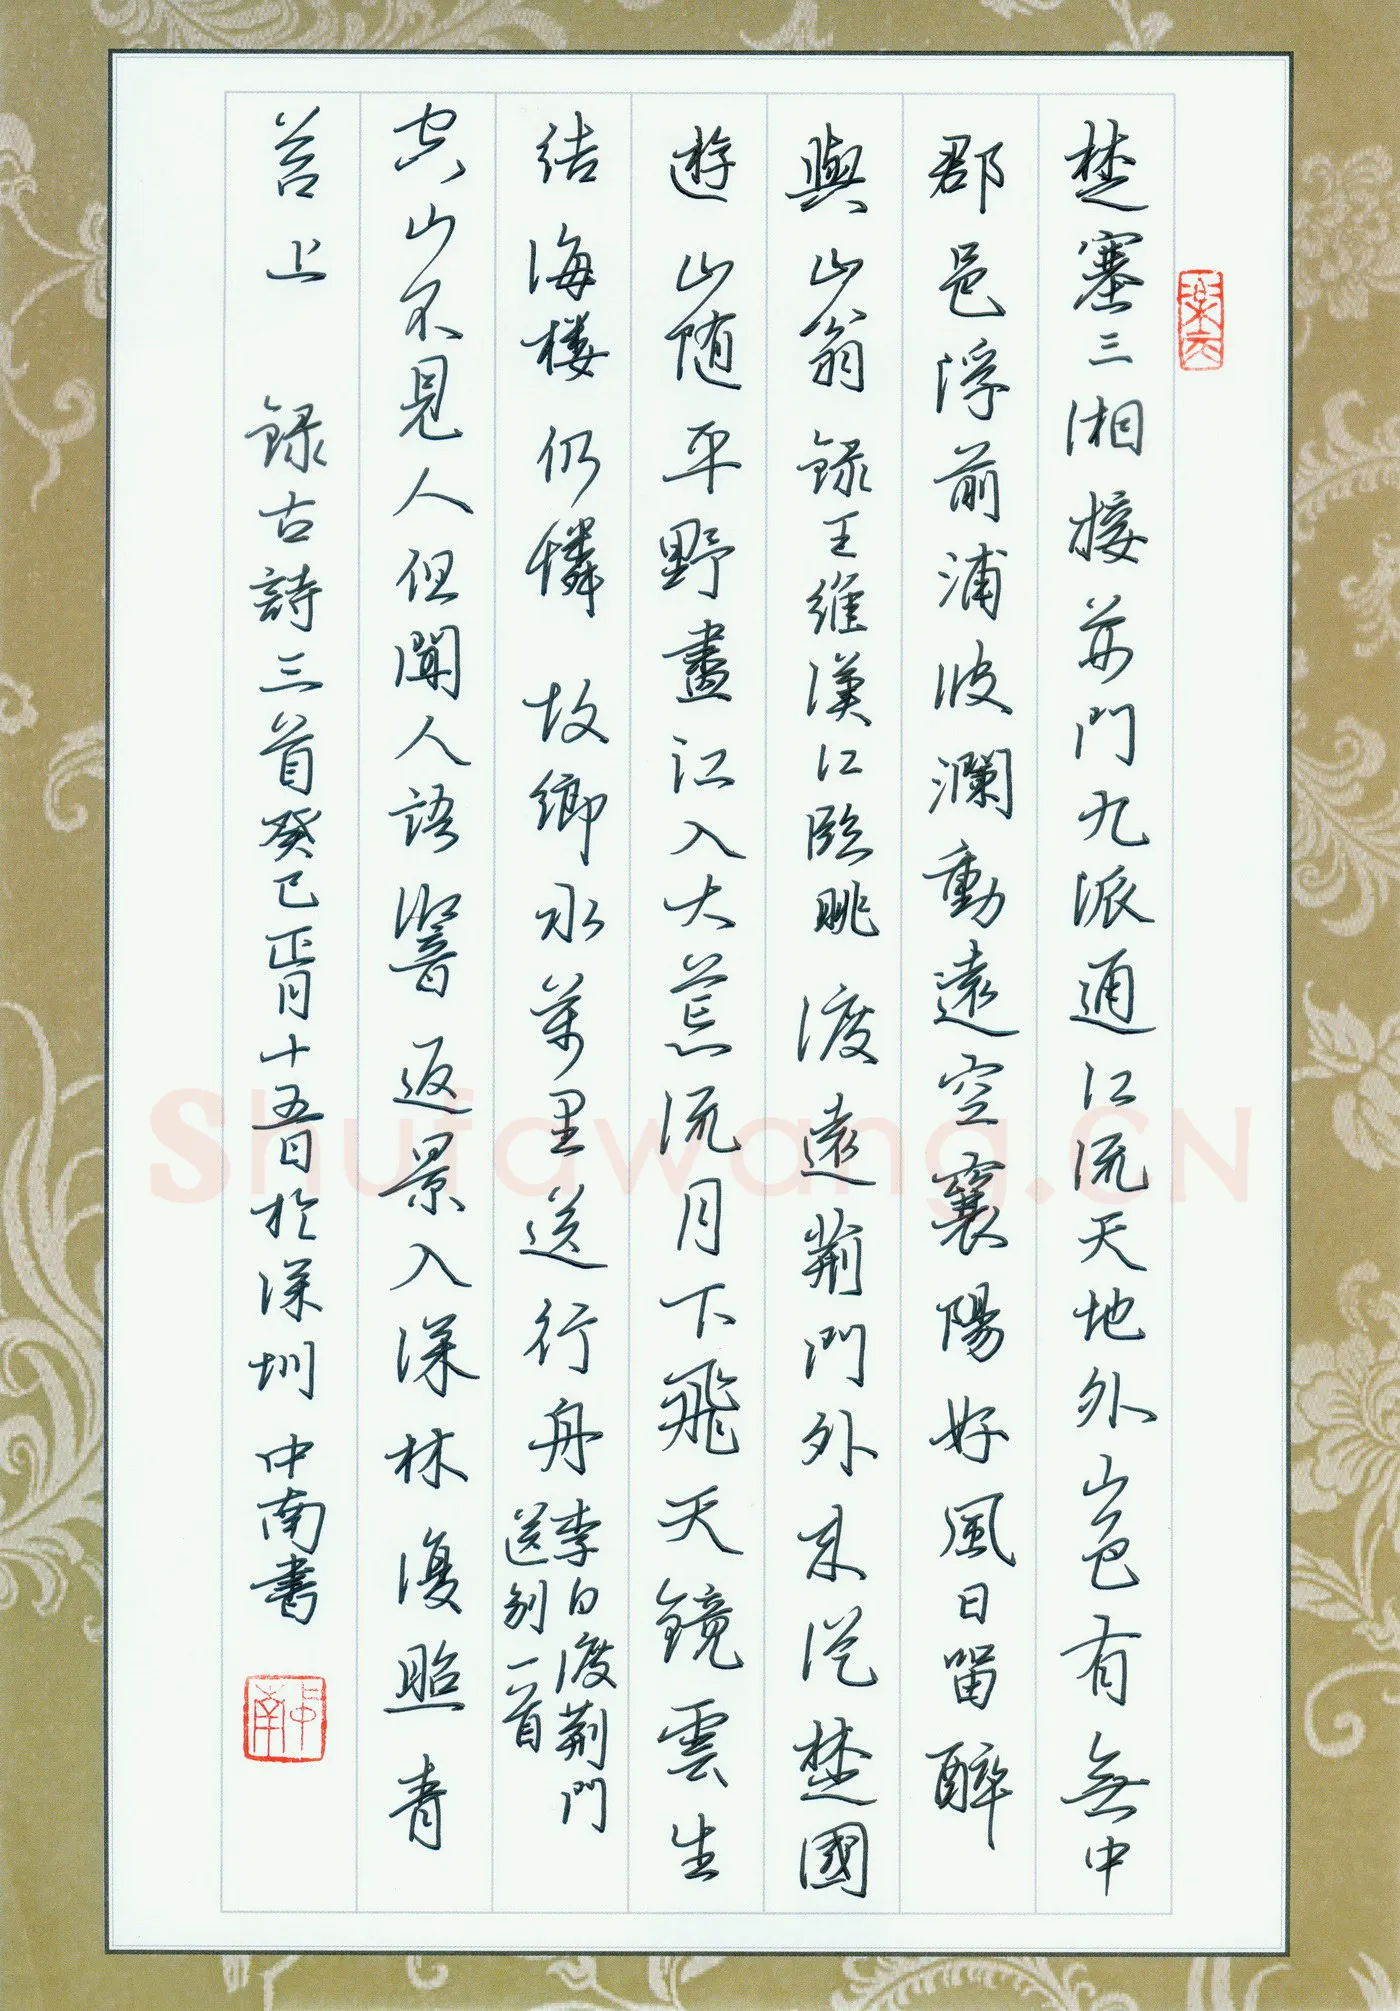 楚塞三湘接荆門九派通江流天地外山色有無中
郡邑浮前浦波瀾動遠空襄陽好風日留醉
與山翁 録王維漢江臨眺 渡遠荆門外来從楚國
遊山随平野盡江入大荒流月下飛天鏡雲生
结海楼仍憐故鄉水萬里送行舟
李白渡荆門
送别一首
空山不見人但聞人語響返景入深林復照青
苔上 録古詩三首癸巳正月十五日於深圳 中南書
中南
Shufawang.CN